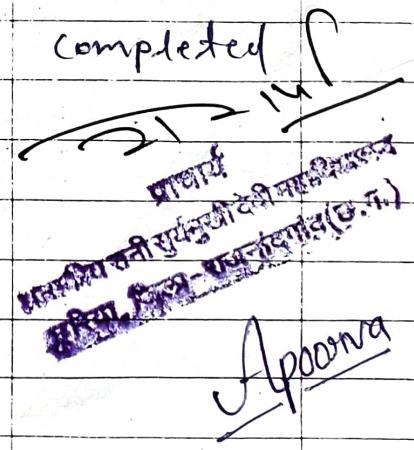 completed
प्राचार्य
रानी सुर्यमुखी देवी महाविद्यालय
छुरिया, जिला - राजनांदगांव (छ.ग.)
Apoorva